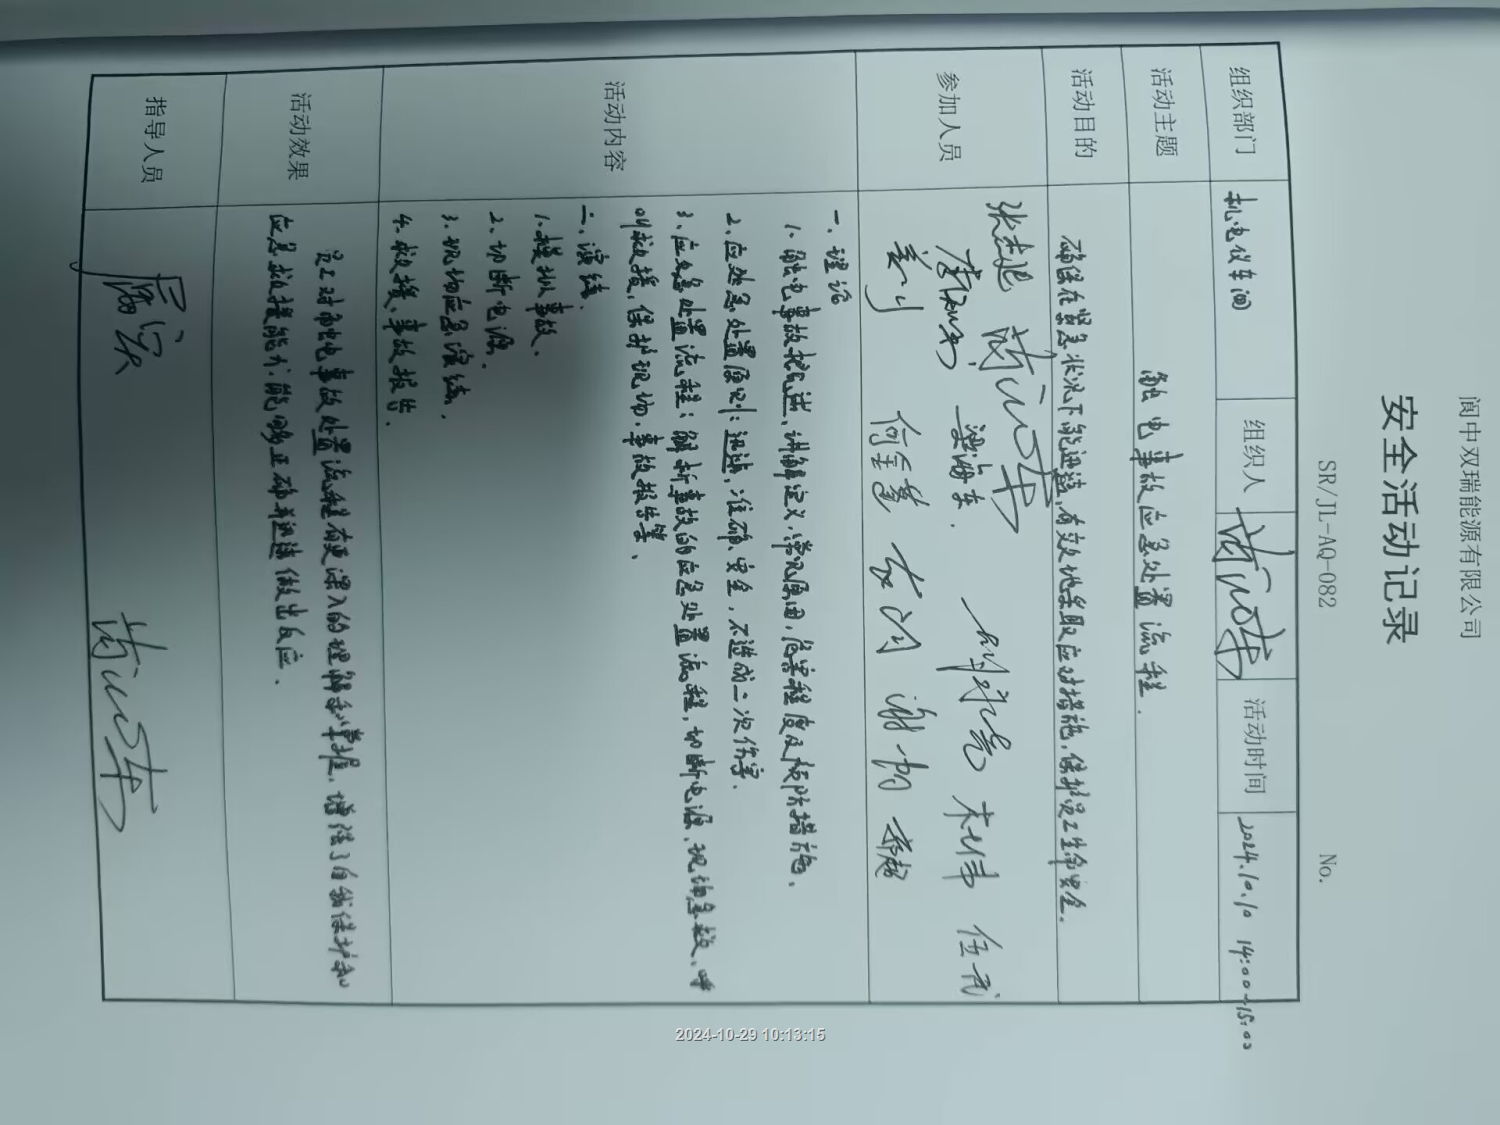 阆中双瑞能源有限公司
安全活动记录
SR/JL-AQ-082 No.
组织部门 机电仪车间 组织人 活动时间 2024.10.10 14:00-15:00
活动主题 触电事故应急处置流程.
活动目的 确保在紧急状况下能迅速,有效地采取应对措施,保护员工生命安全.
参加人员
谢
活动内容
一、理论
1、触电事故概述、讲解定义,常见原因,危害程度及预防措施.
2、应处急处置原则:迅速,准确、安全,不造成二次伤害.
3、应急处置流程:解析事故的应急处置流程,切断电源、现场急救、呼
叫救援、保护现场、事故报告等、
二、演练.
1、模拟事故、
2、切断电源.
3、现场应急演练.
4、救援、事故报告.
活动效果
员工对触电事故处置流程有更深入的理解和掌握,增强了自我保护和
应急救援能力.能够正确并迅速做出反应.
指导人员
2024-10-29 10:13:15